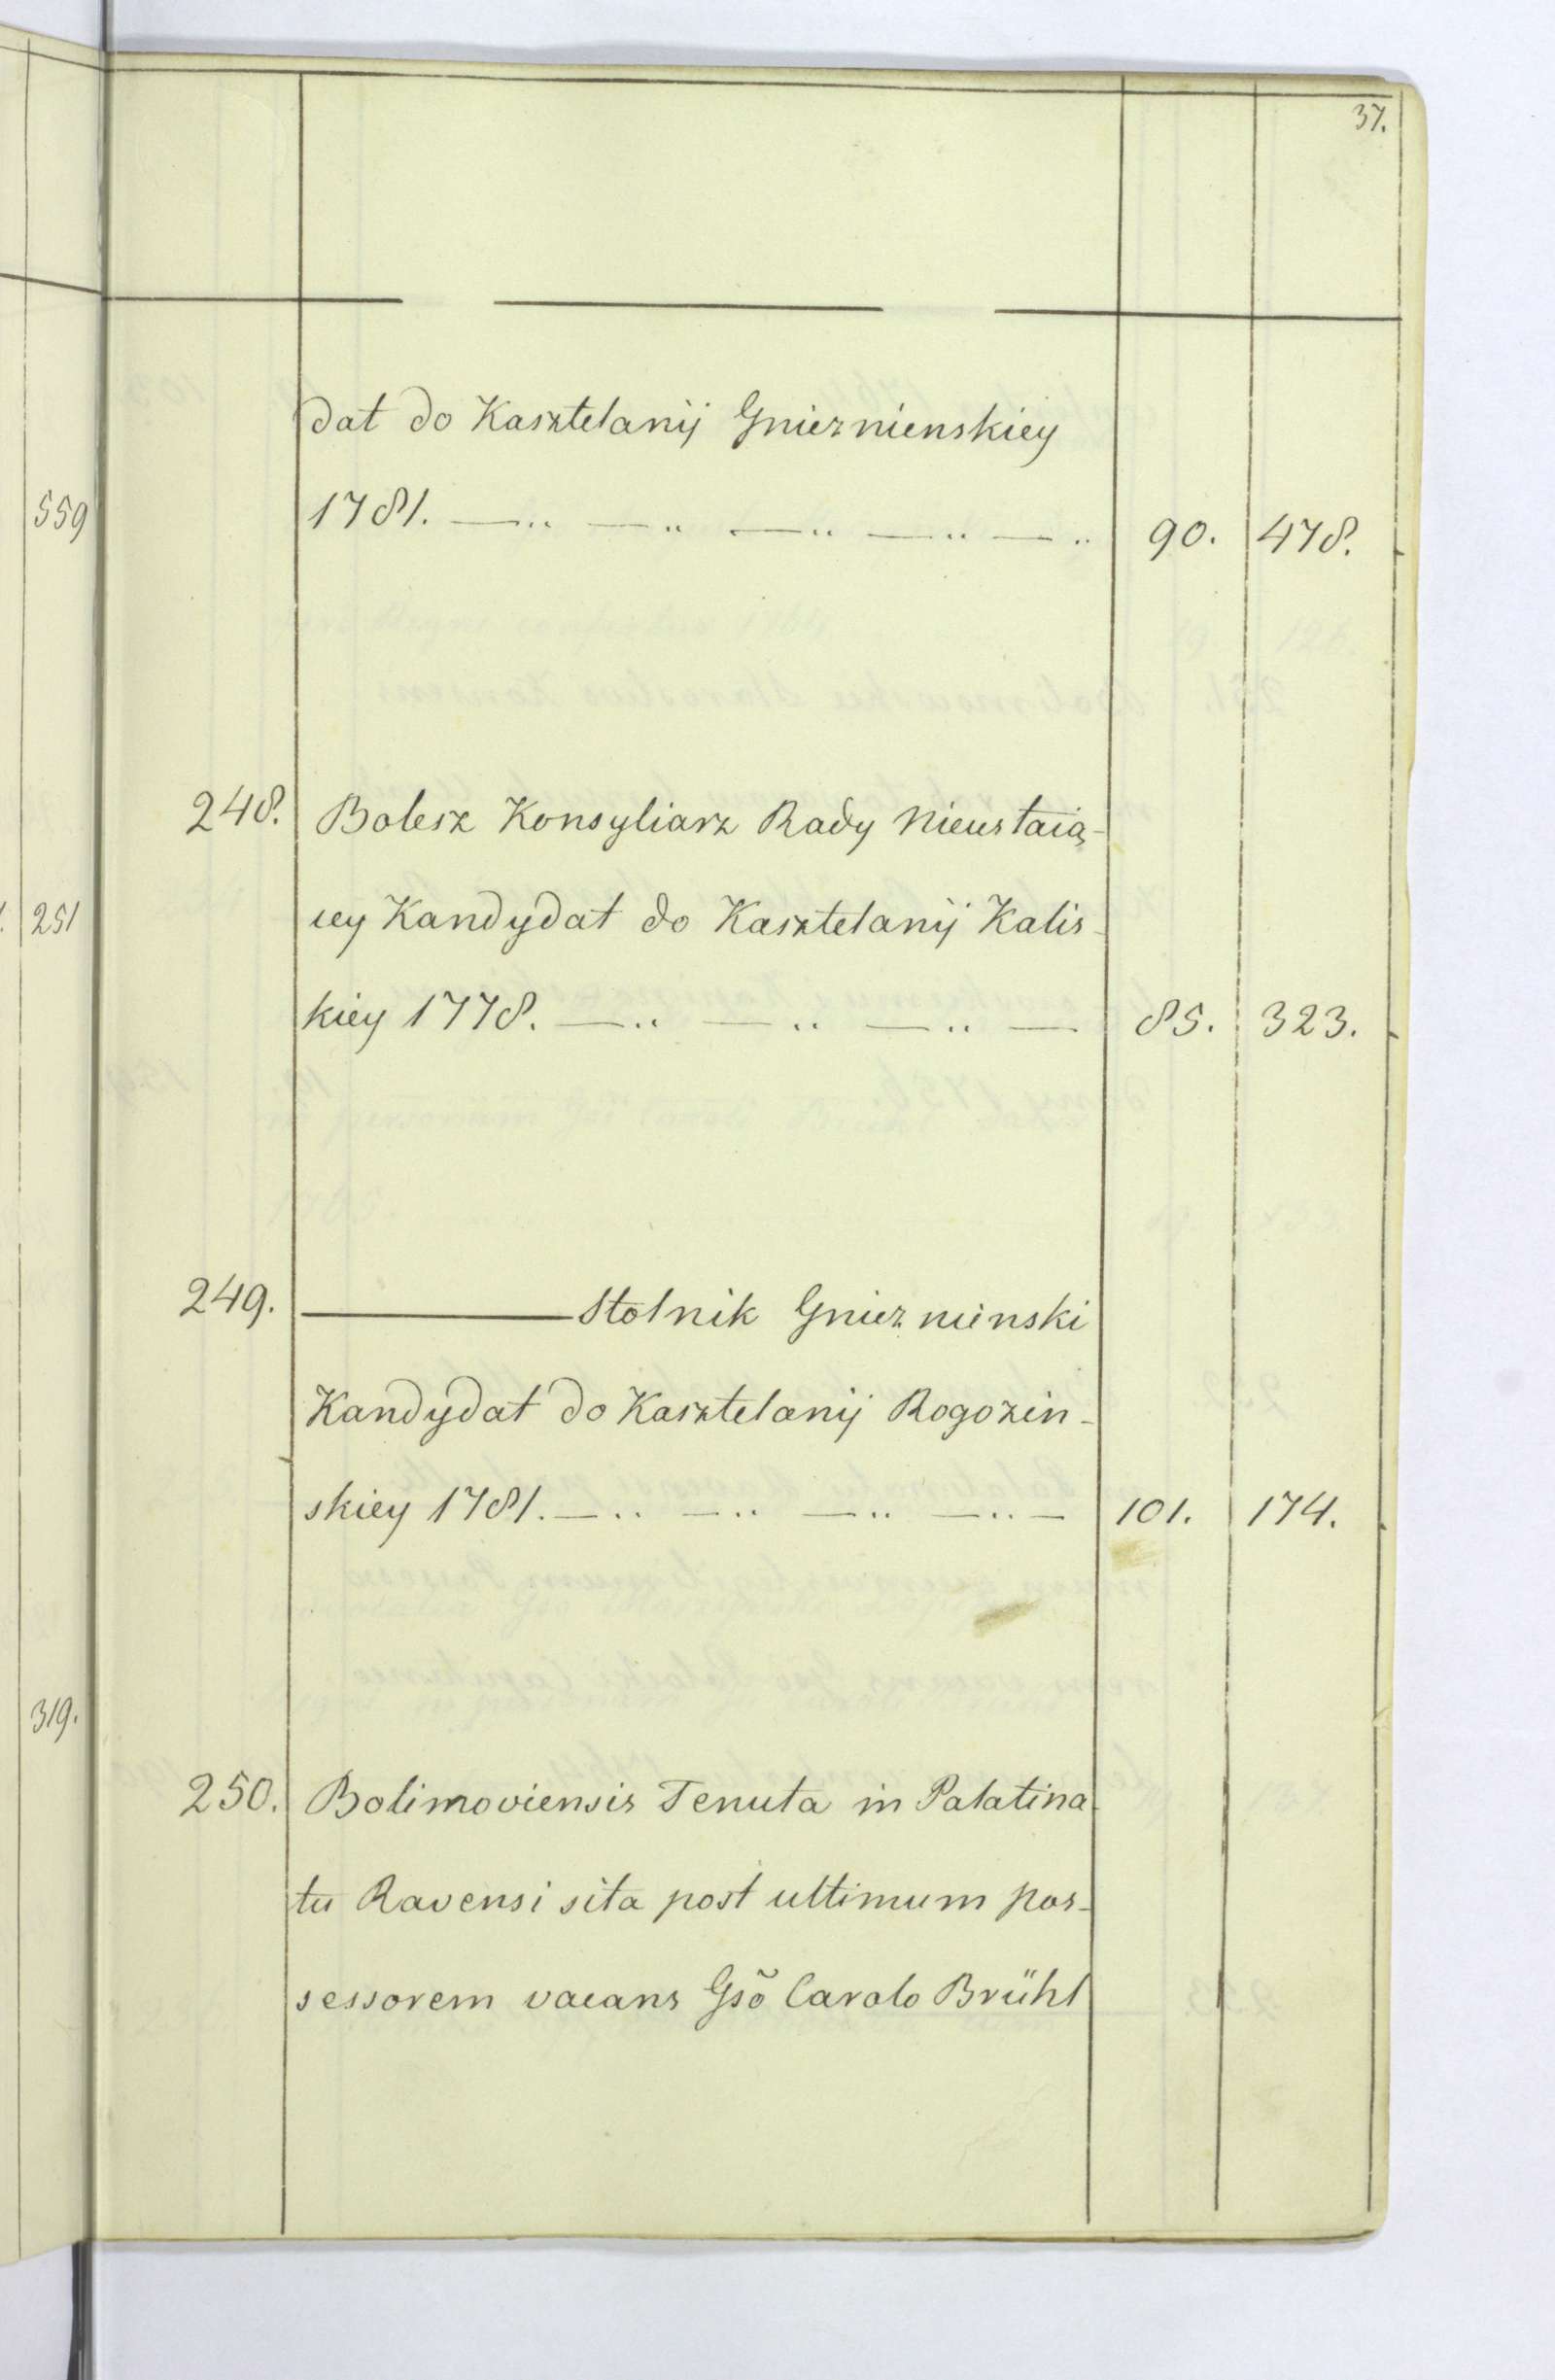 37.
dat do Kasztelanij Gnieznienskiey
1781. —.. —.. —.. —.. —.. 90. 478.
559
248. Bolesz Konsyliarz Rady Nieustaią-
cey Kandydat do Kasztelanij Kalis-
251
kiey 1778. —.. —.. —.. — 85. 323.
249. ——— Stolnik Gnieznienski
Kandydat do Kasztelanij Rogozin-
skiey 1781. —.. —.. —.. —.. — 101. 174.
319.
250. Bolimoviensis Tenuta in Palatina-
tu Ravensi sita post ultimum pos-
sessorem vacans Gsõ Carolo Brühl